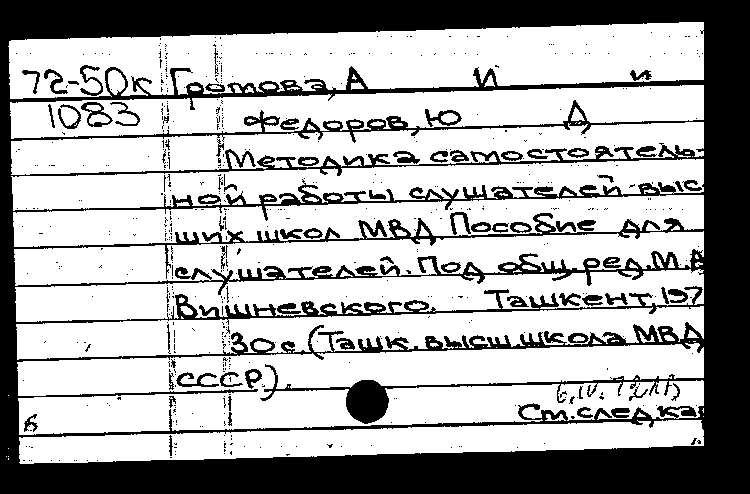 72-50к Громова, А И и
1083 Федоров, Ю Д
Методика самостоятель-
ной работы слушателей выс-
ших школ МВД Пособие для
слушателей. Под общ. ред. М. А
Вишневского. Ташкент, 197
30 с. (Ташк. высш. школа МВД
СССР).
6.IV.72
См. след. кар